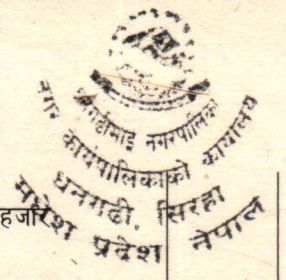 धनगढीमाई नगरपालिका
नगर कार्यपालिकाको कार्यालय
धनगढी, सिरहा
मधेश प्रदेश नेपाल
हजार